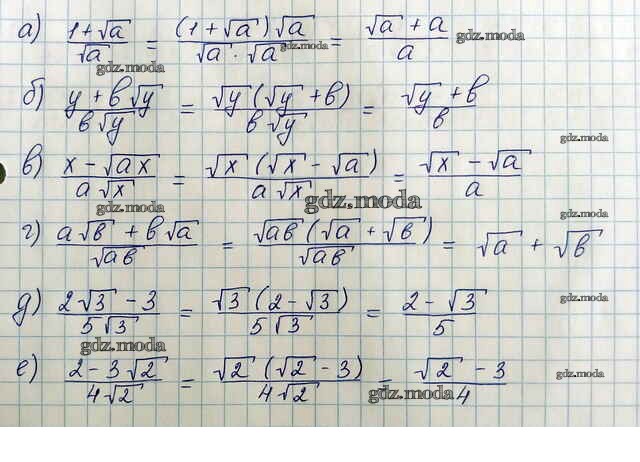 а) (1 + √a)/√a = ((1 + √a)√a)/(√a · √a) = (√a + a)/a
gdz.moda gdz.moda gdz.moda
б) (y + b√y)/(b√y) = (√y(√y + b))/(b√y) = (√y + b)/b
gdz.moda
в) (x - √ax)/(a√x) = (√x(√x - √a))/(a√x) = (√x - √a)/a
gdz.moda gdz.moda gdz.moda
г) (a√b + b√a)/√ab = (√ab(√a + √b))/√ab = √a + √b
д) (2√3 - 3)/(5√3) = (√3(2 - √3))/(5√3) = (2 - √3)/5
gdz.moda gdz.moda
е) (2 - 3√2)/(4√2) = (√2(√2 - 3))/(4√2) = (√2 - 3)/4
gdz.moda gdz.moda